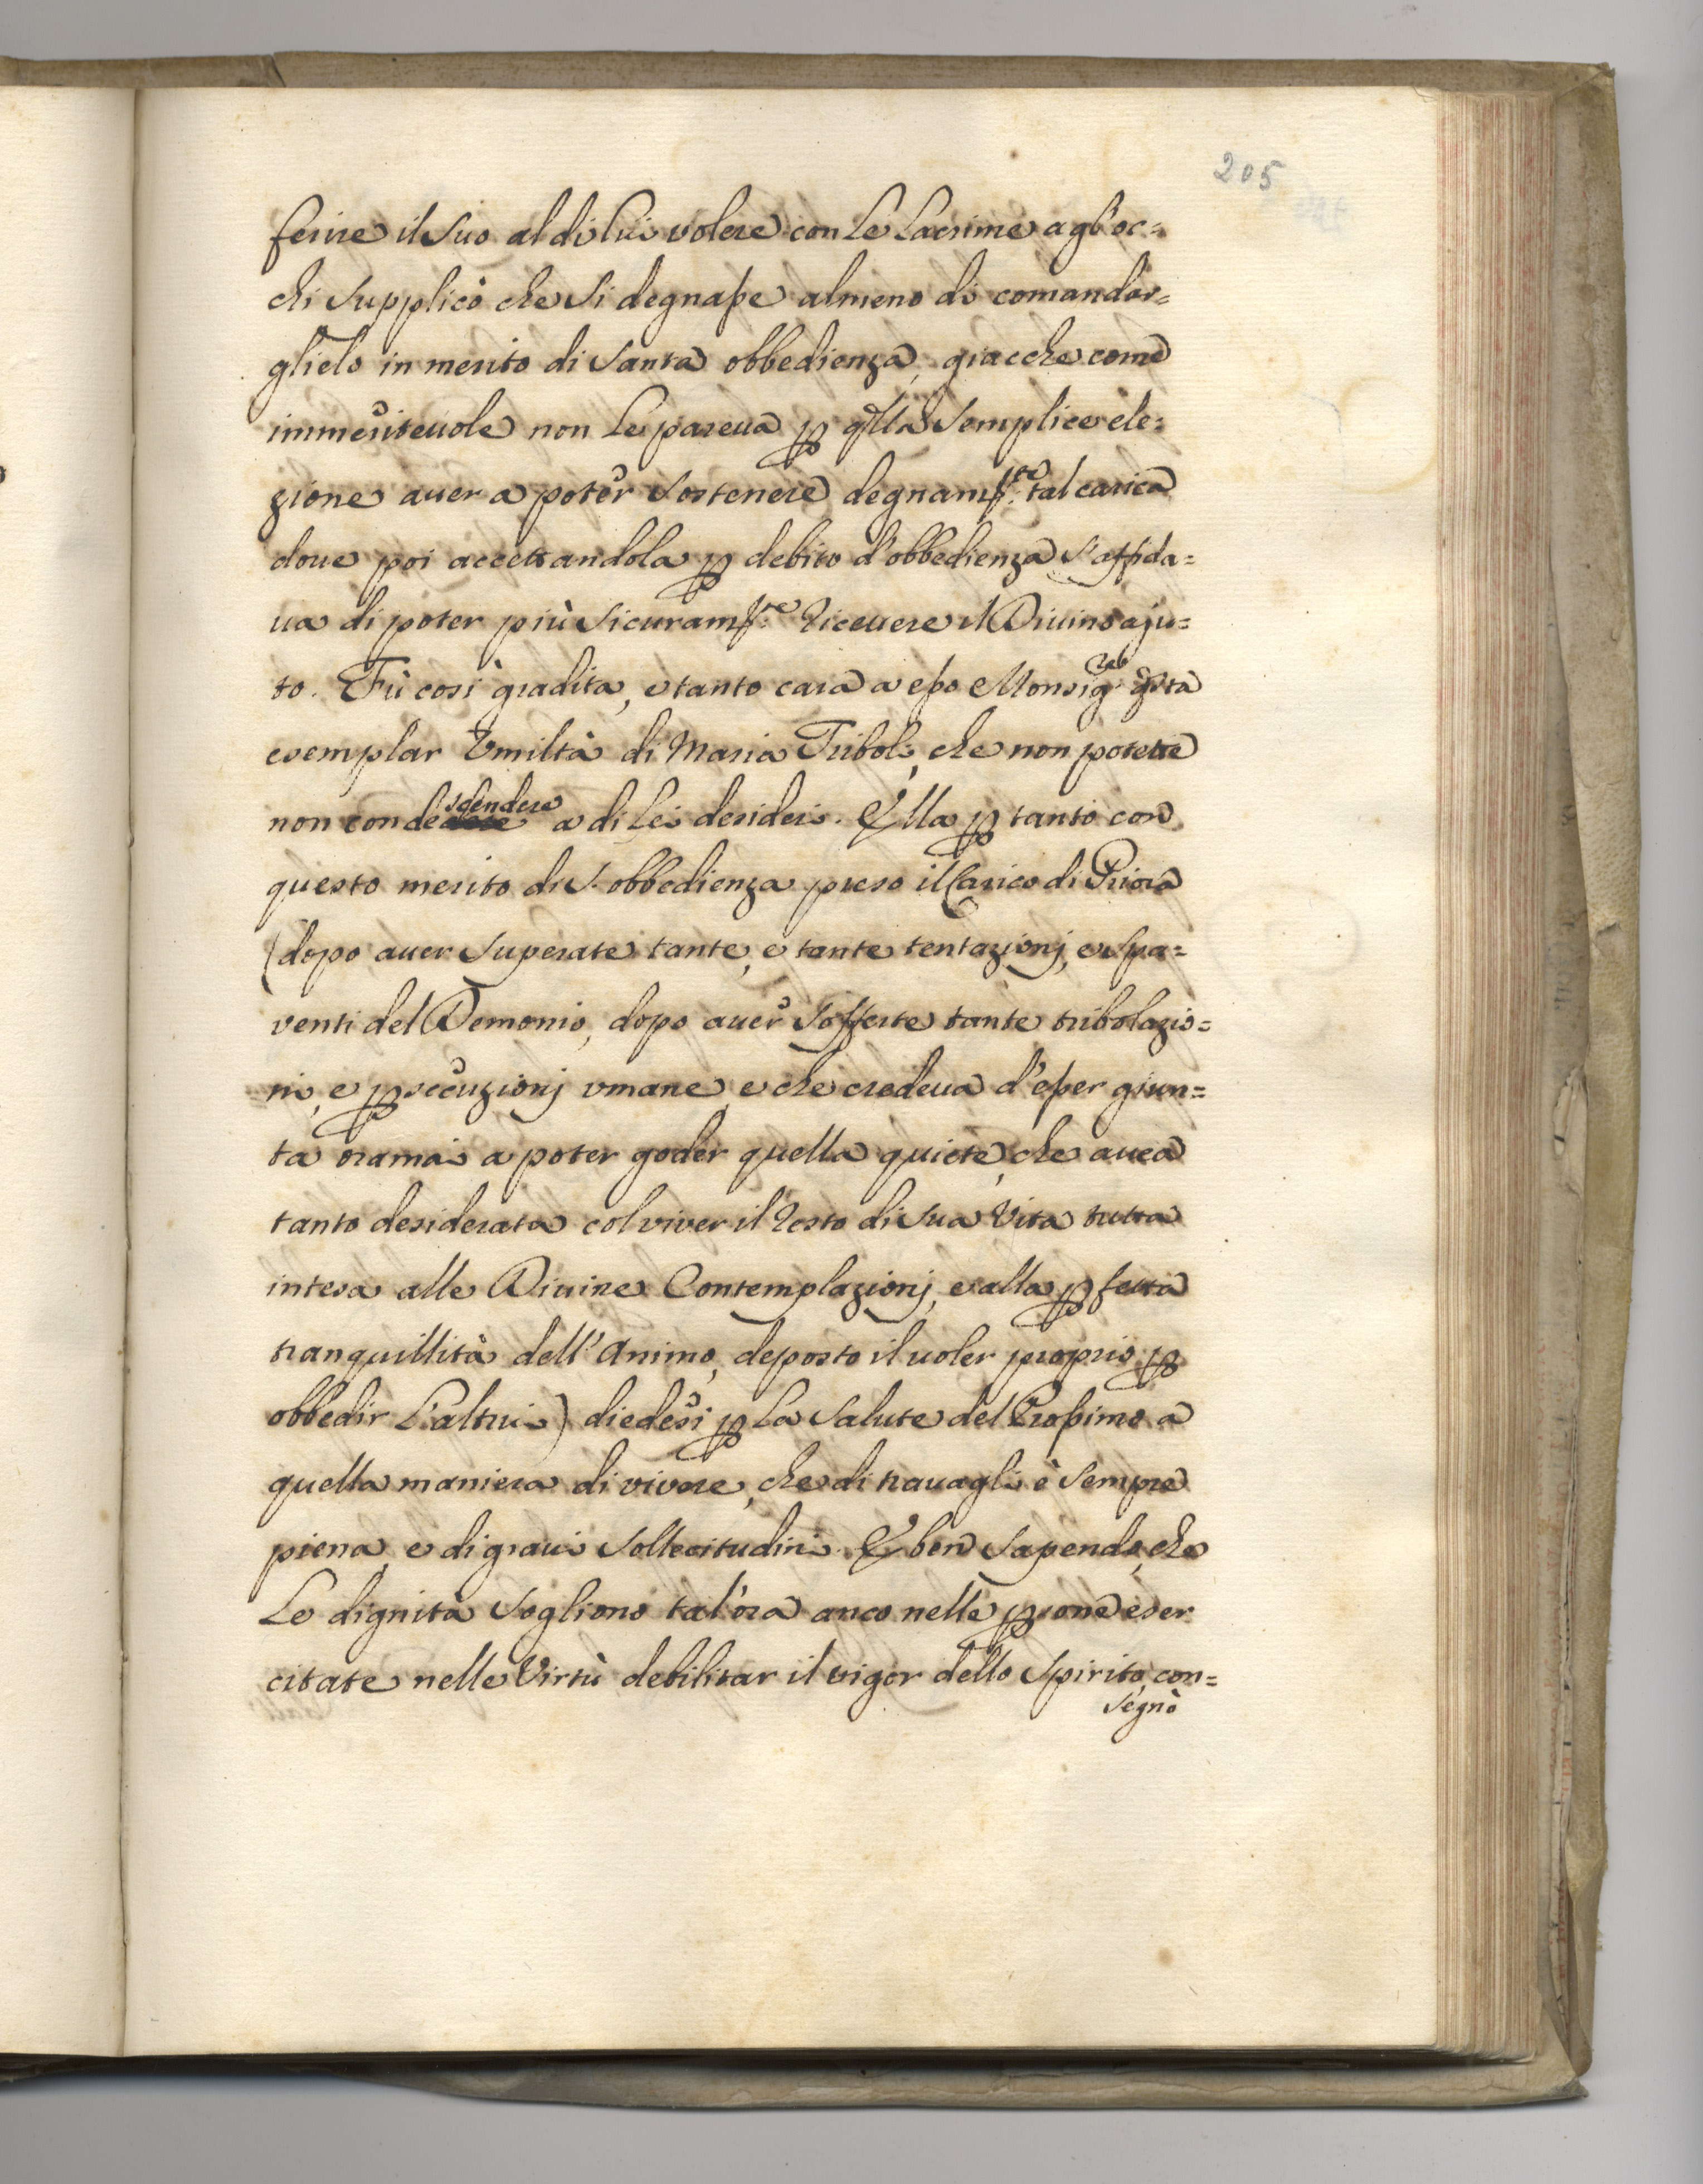 205
ferire il suo al di lui volere con le lacrime agl'oc=
chi supplicò che si degnasse almeno di comandar=
glielo in merito di santa obbedienza, giacche come
immeriteuole non le pareua p qlla semplice ele=
zione auer a poter sostenere degnamte. tal carica
doue poi accettandola p debito d'obbedienza s'affida=
ua di poter più sicuramte. riceuere il Diuino aju=
to. Fù così gradita, e tanto cara a esso Monsigre qsta
esemplar Vmiltà di Maria Tribol:, che non potette
non condescendere a di lei desideri. Ella p tanto con
questo merito di s. obbedienza preso il Carico di Priora
(dopo auer superate tante, e tante tentazionj, e spa=
venti del Demonio, dopo auer sofferte tante tribolazio=
ni, e psecuzionj vmane, e che credeua d'esser giun=
ta oramai a poter goder quella quiete, che auea
tanto desiderata col viver il resto di sua Vita tutta
intesa alle Diuine Contemplazionj, e alla pfetta
tranquillità dell'Animo, deposto il uoler proprio p
obbedir l'altrui) diedesi p la salute del Prossimo a
quella maniera di vivere, che di trauagli è sempre
piena, e di graui sollecitudini. E ben sapendo, che
le dignità sogliono tal'ora anco nelle psone eser
citate nelle Virtù debilitar il vigor dello spirito, con=
segnò